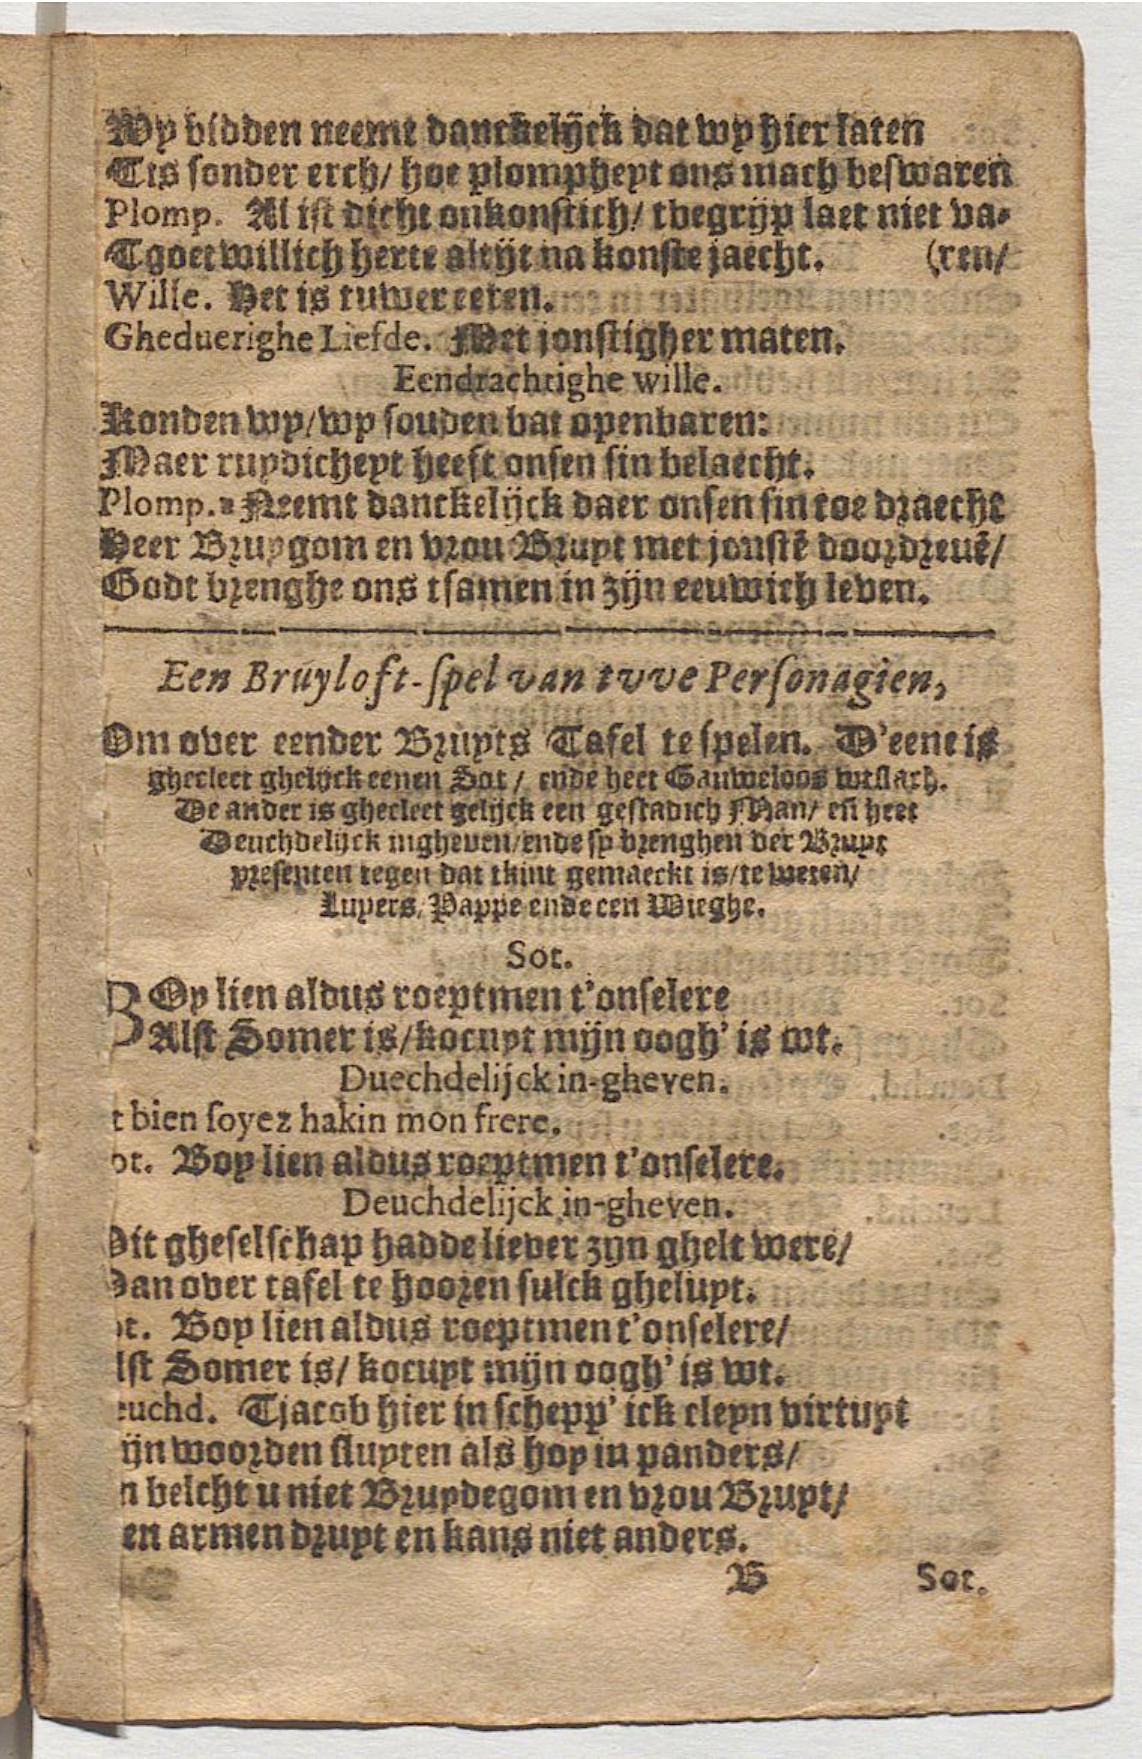 Wy bidden neemt danckelijck dat wy hier laten
Tis sonder erch/ hoe plompheyt ons mach beswaren
Plomp. Al ist dicht onkonstich/ tbegrijp laet niet va-
Tgoetwillich herte altijt na konste jaecht. (ren/
Wille. Het is tuwer eeren.
Gheduerighe Liefde. Met jonstigher maten.
Eendrachtighe wille.
Konden wy/wy souden bat openbaren:
Maer ruydicheyt heeft onsen sin belaecht.
Plomp. Neemt danckelijck daer onsen sin toe draecht
Heer Bruygom en vrou Bruyt met jonstē doordreuē/
Godt brenghe ons tsamen in zijn eeuwich leven.
Een Bruyloft-spel van tvve Personagien,
Om over eender Bruyts Tafel te spelen. D'eene is
ghecleet ghelijck eenen Sot/ ende heet Gauweloos wtslach.
De ander is ghecleet gelijck een gestadich Man/ eñ heet
Deuchdelijck ingheven/ende sy brenghen der Bruyt
presenten tegen dat tkint gemaeckt is/te weten/
Luyers, Pappe ende een Wieghe.
Sot.
BOy lien aldus roeptmen t'onselere
Alst Somer is/kocuyt mijn oogh' is wt.
Duechdelijck in-gheven.
t bien soyez hakin mon frere.
ot. Boy lien aldus roeptmen t'onselere.
Deuchdelijck in-gheven.
Dit gheselschap hadde liever zijn ghelt werē/
Dan over tafel te hooren sulck gheluyt.
ot. Boy lien aldus roeptmen t'onselere/
lst Somer is/ kocuyt mijn oogh' is wt.
euchd. Tjacob hier in schepp' ick cleyn virtuyt
ijn woorden sluyten als hoy in panders/
n belcht u niet Bruydegom en vrou Bruyt/
en armen druyt en kans niet anders.
B Sot.